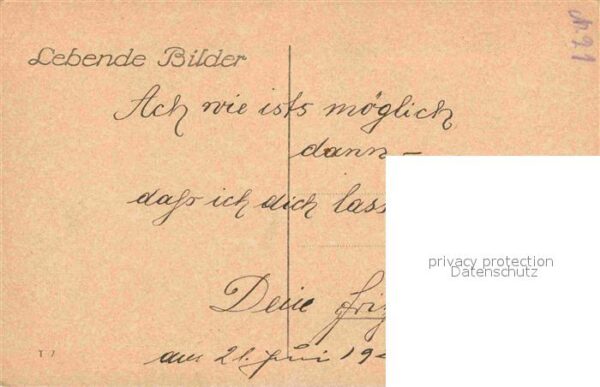 Lebende Bilder
Ach wie ists möglich
dann –
daß ich dich lass
privacy protection
Datenschutz
Deine
am 21. Juni 19